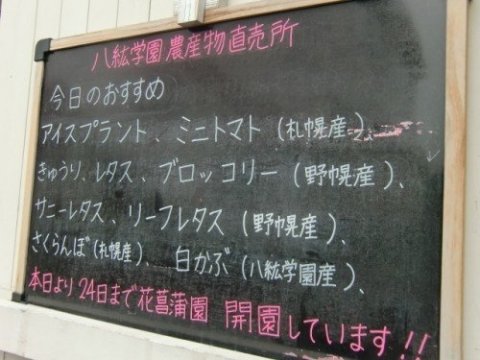 八紘学園農産物直売所
今日のおすすめ
アイスプラント、ミニトマト(札幌産)、
きゅうり、レタス、ブロッコリー(野幌産)、
サニーレタス、リーフレタス(野幌産)、
さくらんぼ(札幌産)、白かぶ(八紘学園産)、
本日より24日まで花菖蒲園 開園しています!!